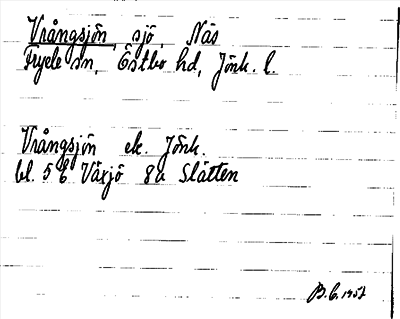 Vrångsjön, sjö, Näs
Fryele sn, Östbo hd, Jönk. l.
Vrångsjön ek. Jönk.
bl. 5 E Växjö 8a Slätten
B.E. 1957